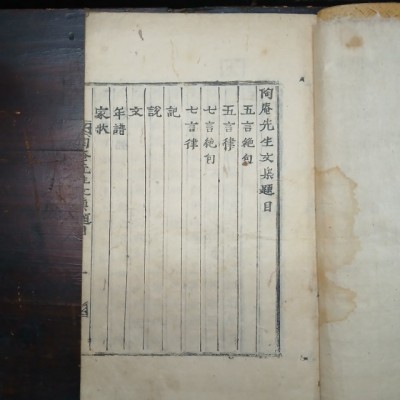 陶庵先生文集題目
五言絶句
五言律
七言絶句
七言律
記
說
文
年譜
家狀